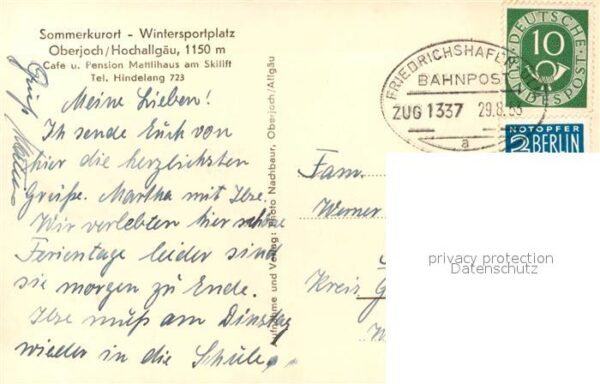 Sommerkurort - Wintersportplatz
Oberjoch/Hochallgäu, 1150 m
Cafe u. Pension Mattlihaus am Skilift
Tel. Hindelang 723
Meine Lieben!
Ich sende Euch von
hier die herzlichsten
Grüße. Martha mit Ilse.
Wir verlebten hier schöne
Ferientage leider sind
sie morgen zu Ende.
Ilse muß am Dinstag
wieder in die Schule.
Gruß
Aufnahme und Verlag: Photo Nachbaur, Oberjoch/Allgäu
FRIEDRICHSHAFEN
BAHNPOST
ZUG 1337 29.8.53
a
DEUTSCHE BUNDESPOST
10
NOTOPFER
2 BERLIN
Fam.
Werner
Kreis G
privacy protection
Datenschutz